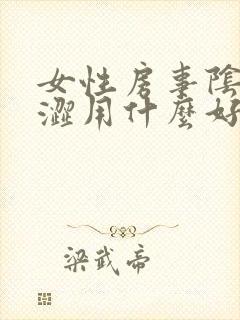 女性房事陰
澀用什麼好
梁武帝